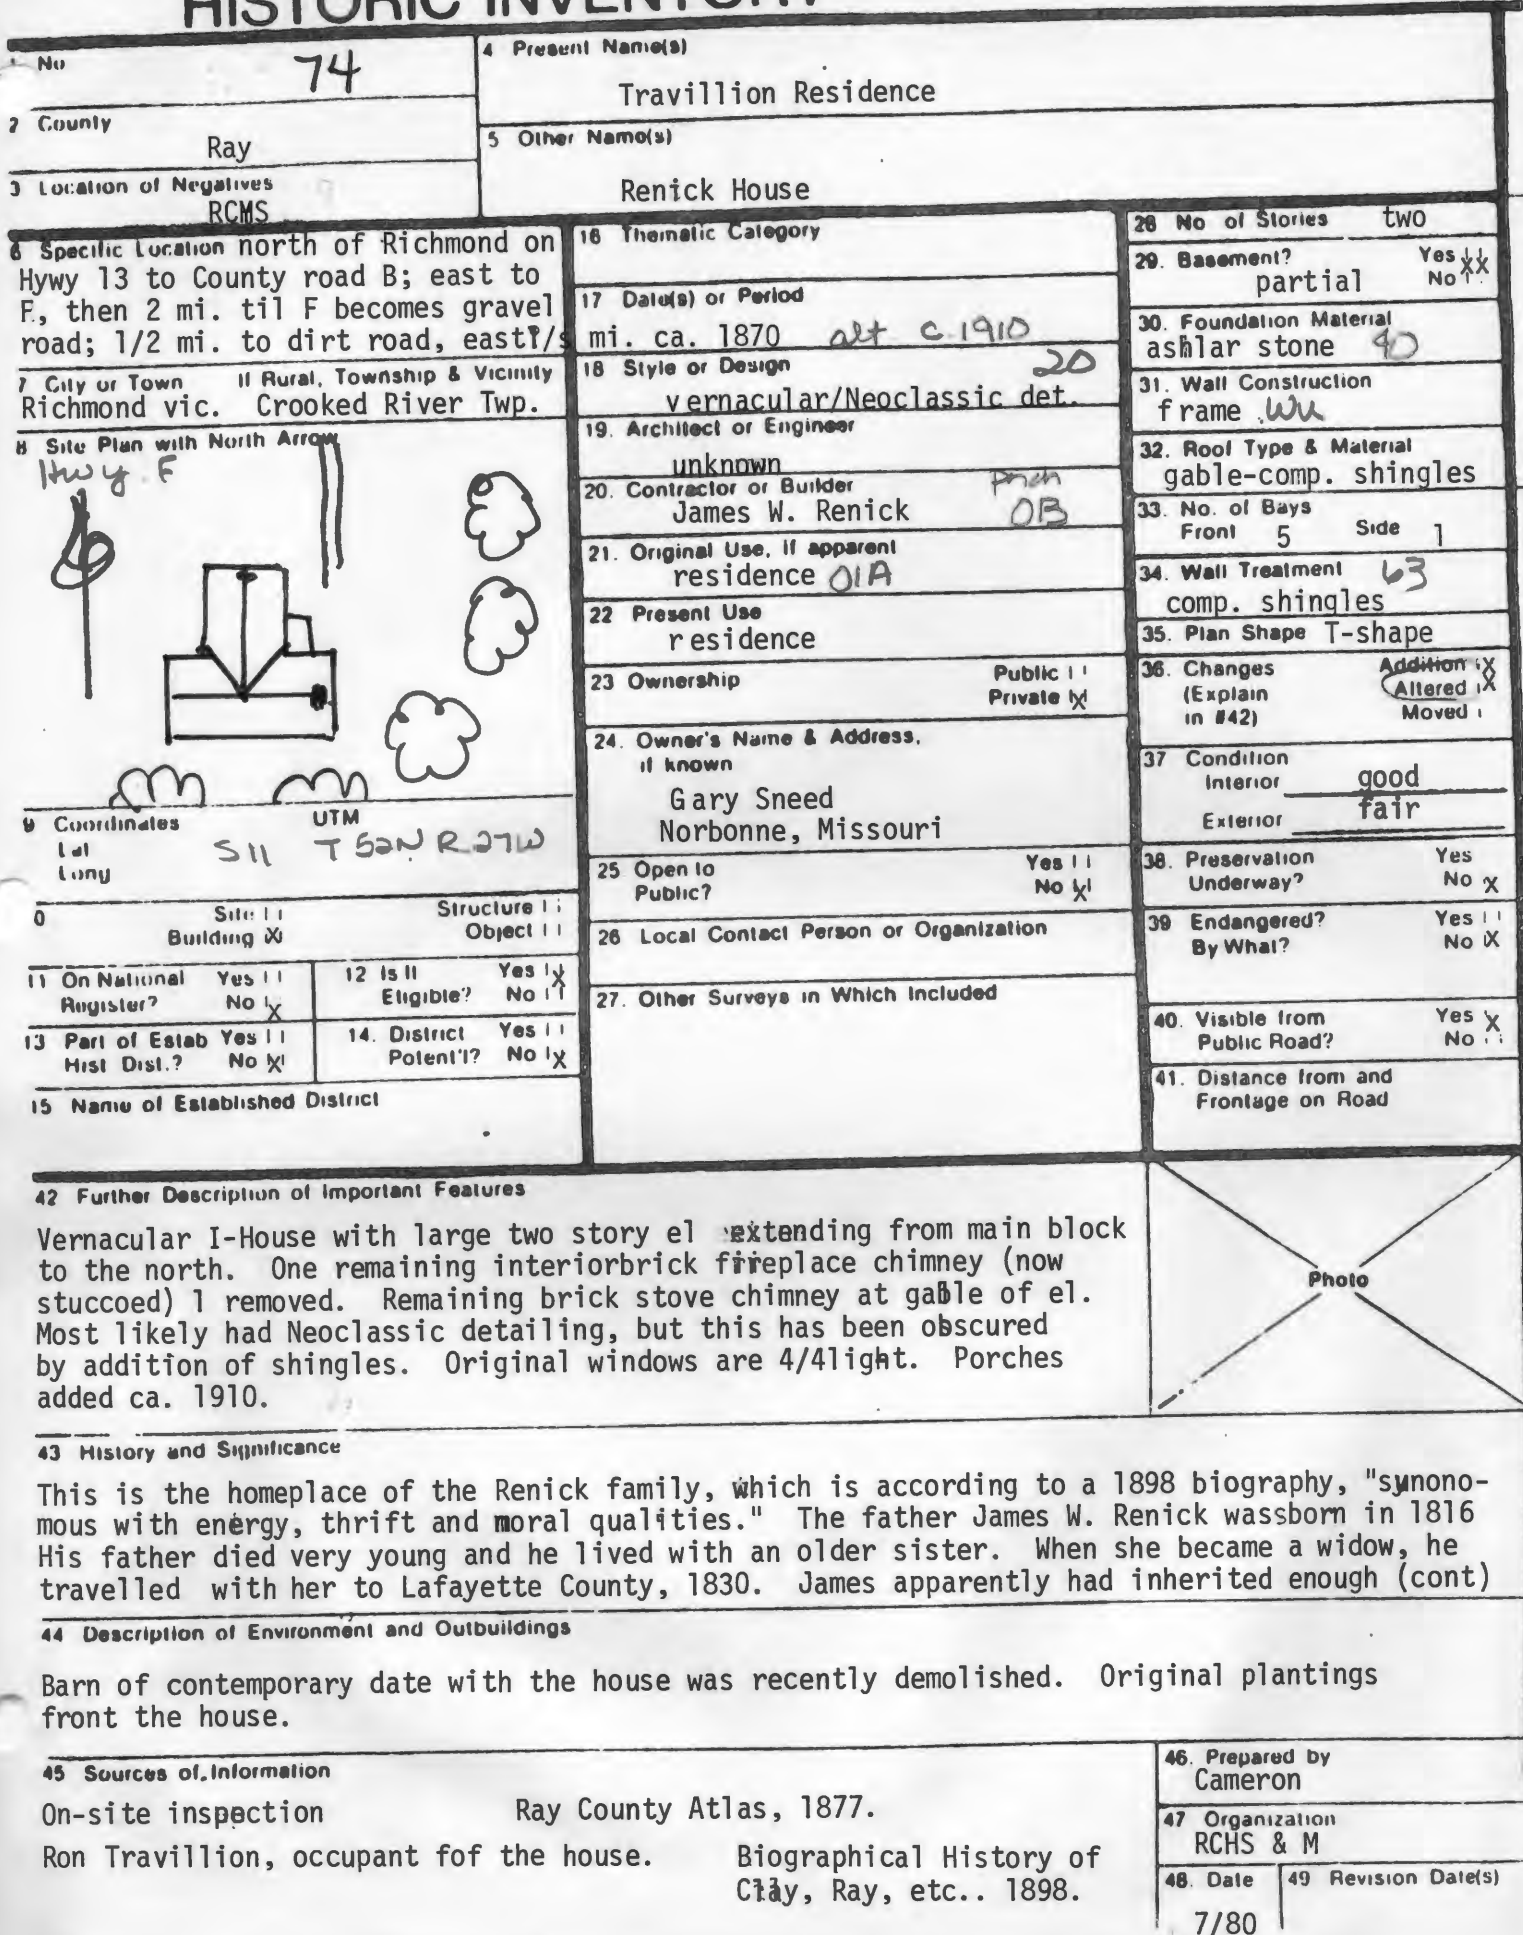 HISTORIC INVENTORY
No 74
2 County
Ray
3 Location of Negatives
RCMS
4 Present Name(s)
Travillion Residence
5 Other Name(s)
Renick House
6 Specific Location north of Richmond on
Hywy 13 to County road B; east to
F., then 2 mi. til F becomes gravel
road; 1/2 mi. to dirt road, east mi.
7 City or Town If Rural, Township & Vicinity
Richmond vic. Crooked River Twp.
8 Site Plan with North Arrow
Hwy. F
9 Coordinates UTM
Lat
Long
S11 T52N R27W
0 Site Structure
Building X Object
11 On National Register? Yes No X
12 Is It Eligible? Yes X No
13 Part of Estab Hist Dist.? Yes No X
14. District Potent'l? Yes No X
15 Name of Established District
16 Thematic Category
17 Date(s) or Period
ca. 1870 alt c 1910
18 Style or Design 20
vernacular/Neoclassic det.
19. Architect or Engineer
unknown
20. Contractor or Builder porch
James W. Renick OB
21. Original Use, if apparent
residence 01A
22 Present Use
residence
23 Ownership Public
Private X
24. Owner's Name & Address,
if known
Gary Sneed
Norbonne, Missouri
25 Open to Yes
Public? No X
26 Local Contact Person or Organization
27. Other Surveys in Which Included
28 No of Stories two
29. Basement? Yes XX
partial No
30. Foundation Material
ashlar stone 40
31. Wall Construction
frame
32. Roof Type & Material
gable-comp. shingles
33. No. of Bays
Front 5 Side 1
34. Wall Treatment 63
comp. shingles
35. Plan Shape T-shape
36. Changes Addition X
(Explain Altered X
in #42) Moved
37 Condition
Interior good
Exterior fair
38. Preservation Yes
Underway? No X
39 Endangered? Yes
By What? No X
40. Visible from Yes X
Public Road? No
41. Distance from and
Frontage on Road
42 Further Description of Important Features
Vernacular I-House with large two story el extending from main block
to the north. One remaining interiorbrick fireplace chimney (now
stuccoed) 1 removed. Remaining brick stove chimney at gable of el.
Most likely had Neoclassic detailing, but this has been obscured
by addition of shingles. Original windows are 4/4light. Porches
added ca. 1910.
Photo
43 History and Significance
This is the homeplace of the Renick family, which is according to a 1898 biography, "synono-
mous with energy, thrift and moral qualities." The father James W. Renick wassborn in 1816
His father died very young and he lived with an older sister. When she became a widow, he
travelled with her to Lafayette County, 1830. James apparently had inherited enough (cont)
44 Description of Environment and Outbuildings
Barn of contemporary date with the house was recently demolished. Original plantings
front the house.
45 Sources of Information
On-site inspection Ray County Atlas, 1877.
Ron Travillion, occupant fof the house. Biographical History of
Clay, Ray, etc.. 1898.
46. Prepared by
Cameron
47 Organization
RCHS & M
48. Date 49 Revision Date(s)
7/80